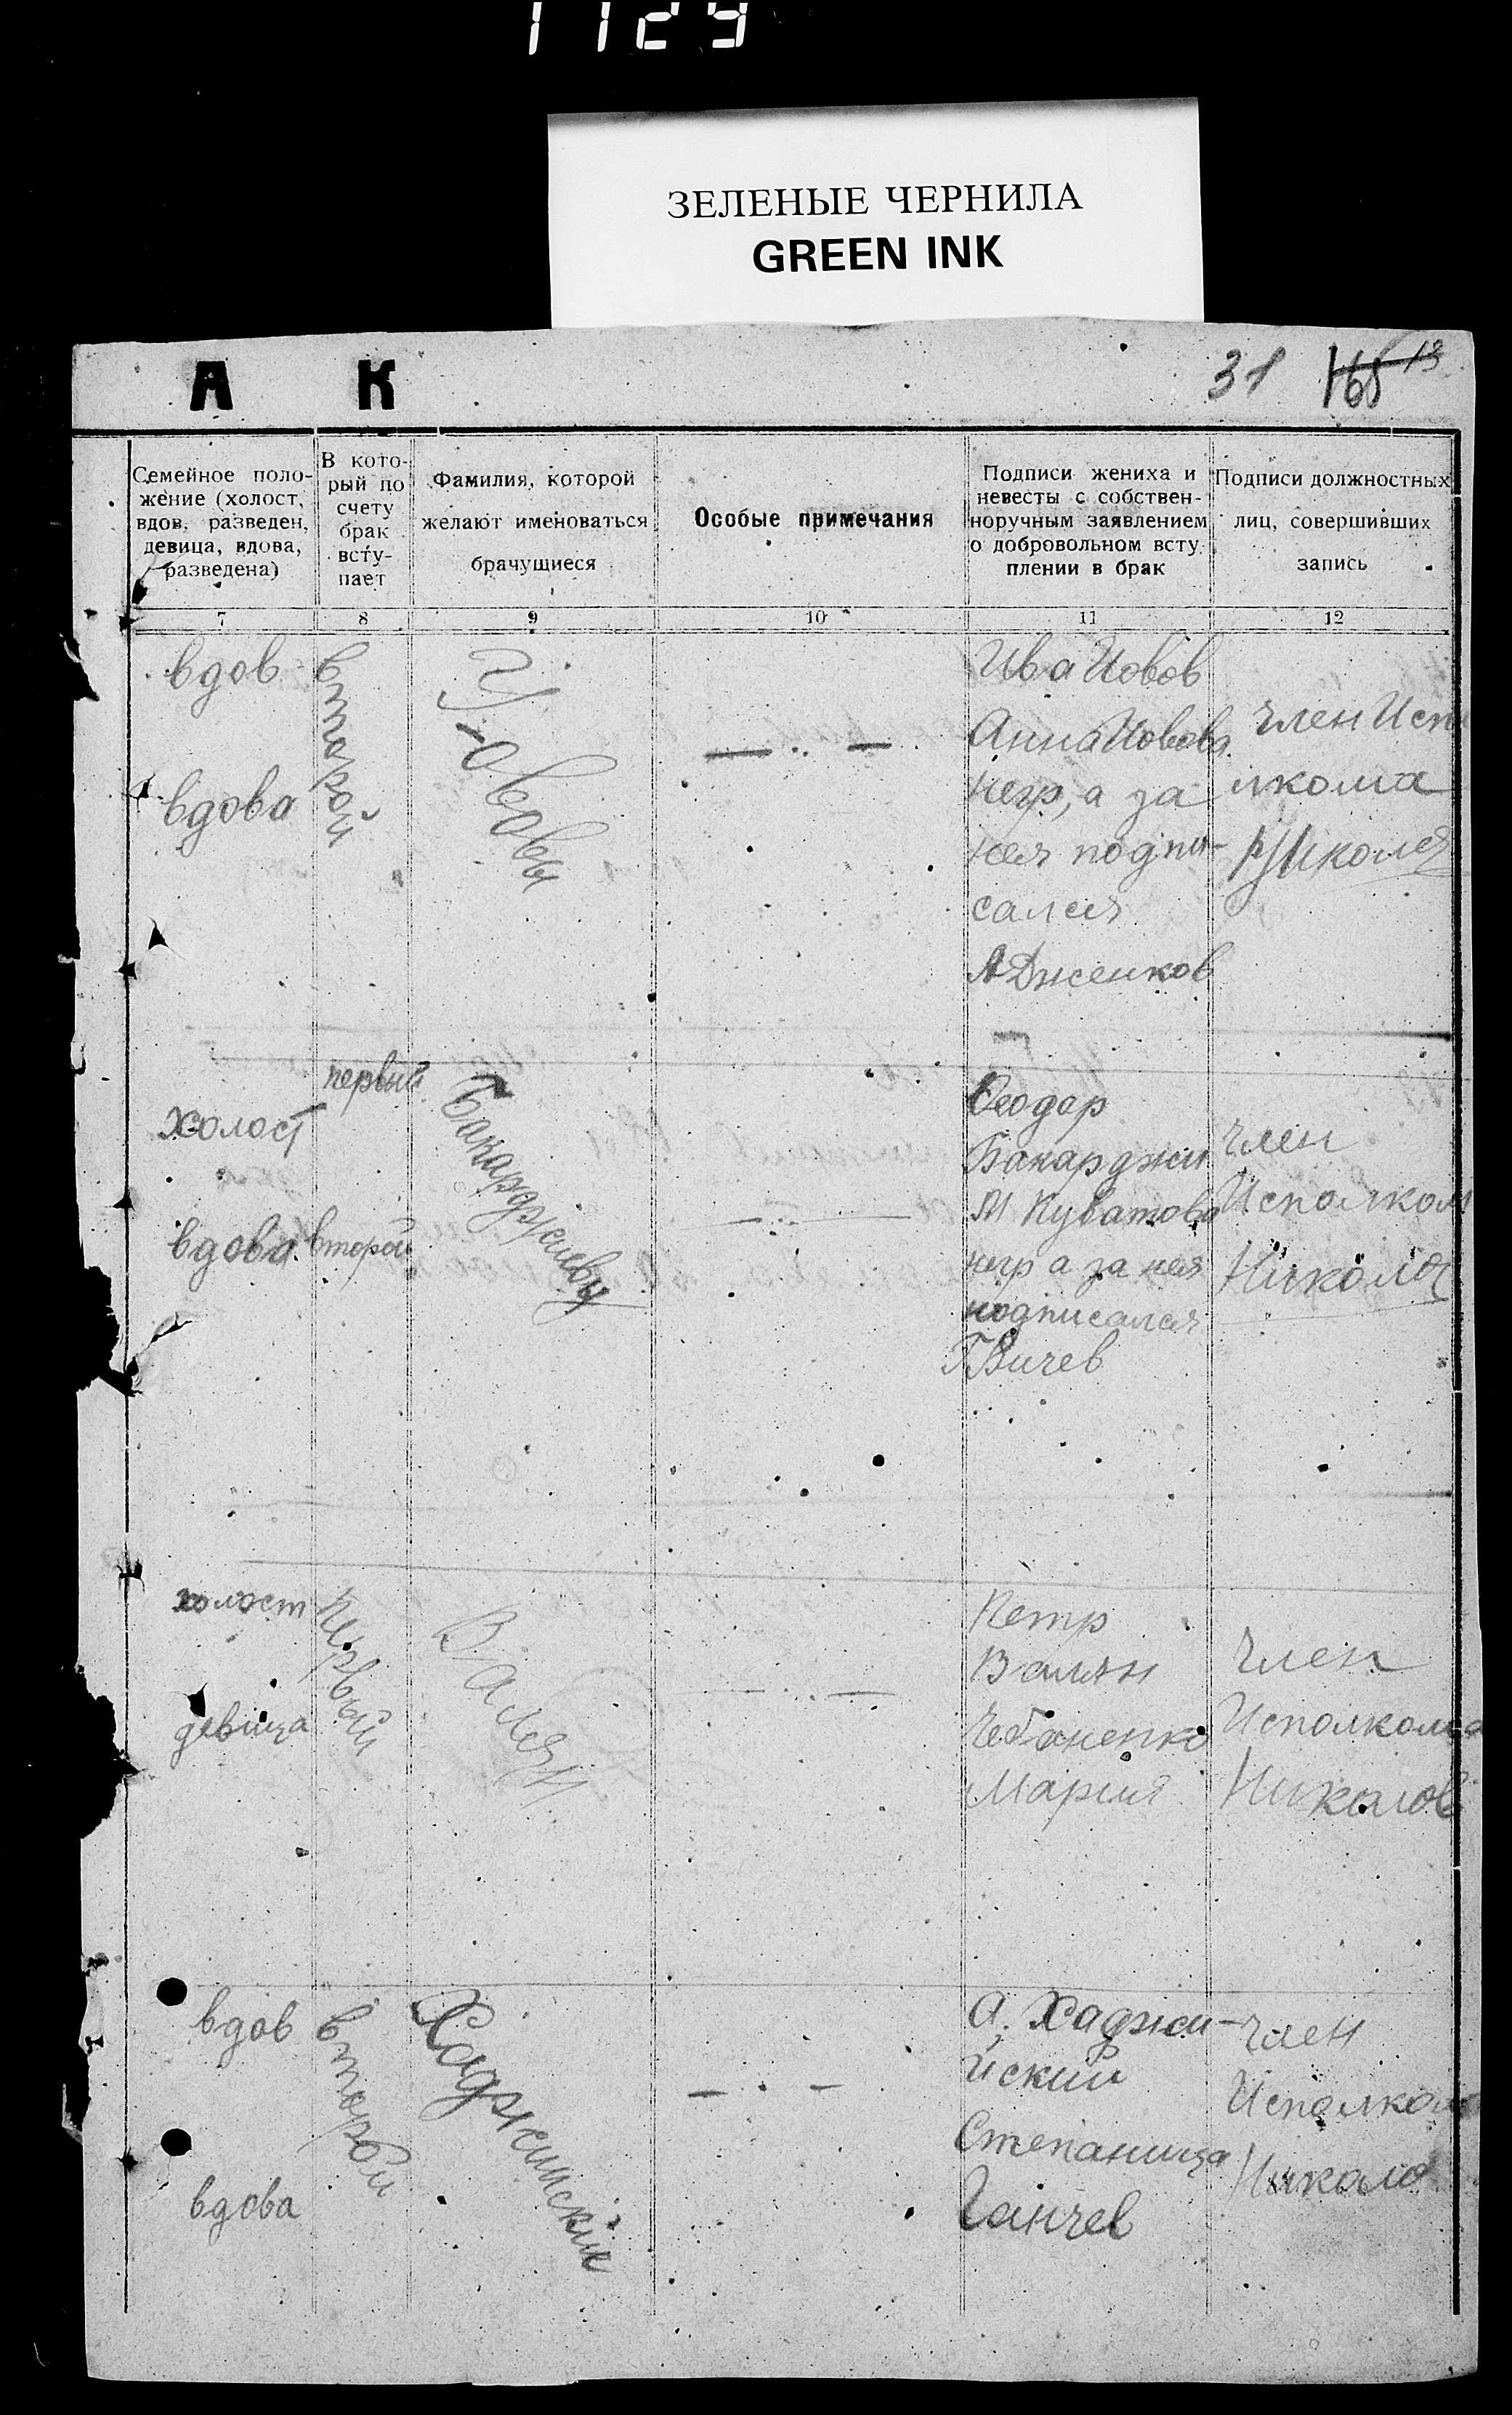 1129
ЗЕЛЕНЫЕ ЧЕРНИЛА
GREEN INK
А К
31 165 13
Семейное поло-
жение (холост,
вдов, разведен,
девица, вдова,
разведена)
В кото-
рый по
счету
брак
всту-
пает
Фамилия, которой
желают именоваться
брачущиеся
Особые примечания
Подписи жениха и
невесты с собствен-
норучным заявлением
о добровольном всту
плении в брак
Подписи должностных
лиц, совершивших
запись
7 8 9 10 11 12
вдов
вдова
второй
Иововы
— .. —
Ива Иовов
Анна Иовова
негр, а за
нея подпи-
сался
А Дженков
член Исп
лкома
Николов
холост
вдова
первый
второй
Бакарджиевы
— .. —
Феодор
Бакарджи
М Куватова
негр а за нея
подписался
Г Вичев
Член
Исполком
Никола
холост
девица
первый
Валян
— .. —
Петр
Валян
Чебаненко
Мария
Член
Исполкома
Николов
вдов
вдова
второй
Хаджийский
— . —
А. Хаджи-
йский
Степанида
Ганчев
член
Исполком
Николо